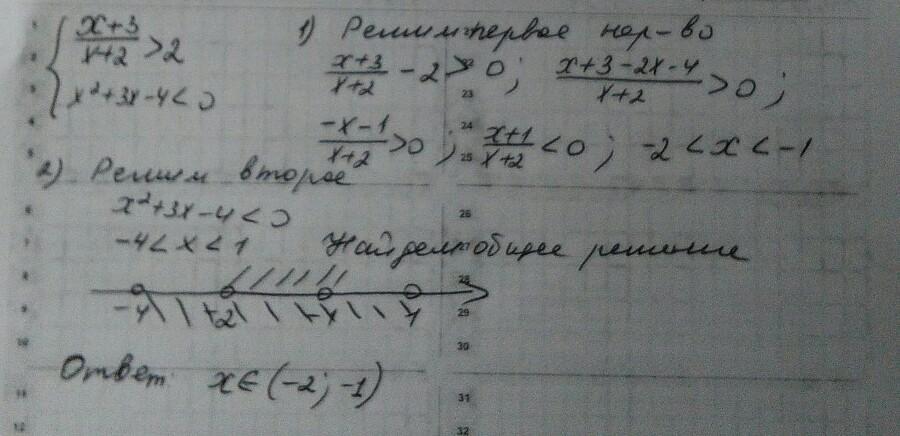 { (x+3)/(x+2) > 2
x²+3x-4<0
1) Решим первое нер-во
(x+3)/(x+2) - 2 > 0; (x+3-2x-4)/(x+2) > 0;
(-x-1)/(x+2) > 0; (x+1)/(x+2) < 0; -2 < x < -1
2) Решим второе
x²+3x-4<0
-4<x<1 Найдем общее решение
-4 -2 -1 1
Ответ x∈(-2; -1)
23
24
25
26
28
29
30
31
32
4
5
6
7
8
9
10
11
12